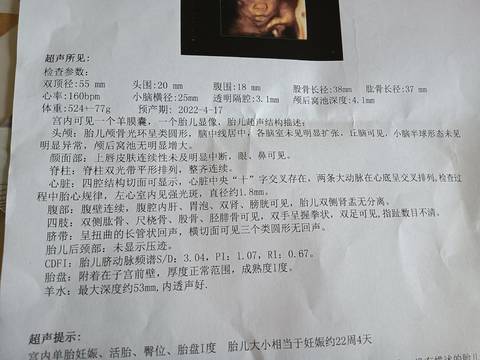 超声所见:
检查参数:
双顶径:55 mm 头围:20 mm 腹围:18 mm 股骨长径:38mm 肱骨长径:37 mm
心率:160bpm 小脑横径:25mm 透明隔腔:3.1mm 颅后窝池深度:4.1mm
体重:524+-77g 预产期: 2022-4-17
宫内可见一个羊膜囊,一个胎儿显像,胎儿超声结构描述:
头颅: 胎儿颅骨光环呈类圆形,脑中线居中,各脑室未见明显扩张,丘脑可见,小脑半球形态未见
明显异常,颅后窝池无明显增大。
颜面部: 上唇皮肤连续性未及明显中断,眼、鼻可见。
脊柱: 脊柱双光带平形排列,整齐连续。
心脏: 四腔结构切面可显示,心脏中央“十”字交叉存在,两条大动脉在心底呈交叉排列,检查过
程中胎心规律,左心室内见强光斑,直径约1.8mm。
腹部: 腹壁连续,腹腔内肝、胃泡、双肾、膀胱可见,胎儿双侧肾盂无分离。
四肢: 双侧肱骨、尺桡骨、股骨、胫腓骨可见,双手呈握拳状,双足可见,指趾数目不清。
脐带: 呈扭曲的长管状回声,横切面可见三个类圆形无回声。
胎儿后颈部: 未显示压迹。
CDFI: 胎儿脐动脉频谱S/D: 3.04, PI: 1.07, RI: 0.67。
胎盘: 附着在子宫前壁,厚度正常范围,成熟度I度。
羊水: 最大深度约53mm,内透声好.
超声提示:
宫内单胎妊娠、活胎、臀位、胎盘I度 胎儿大小相当于妊娠约22周4天